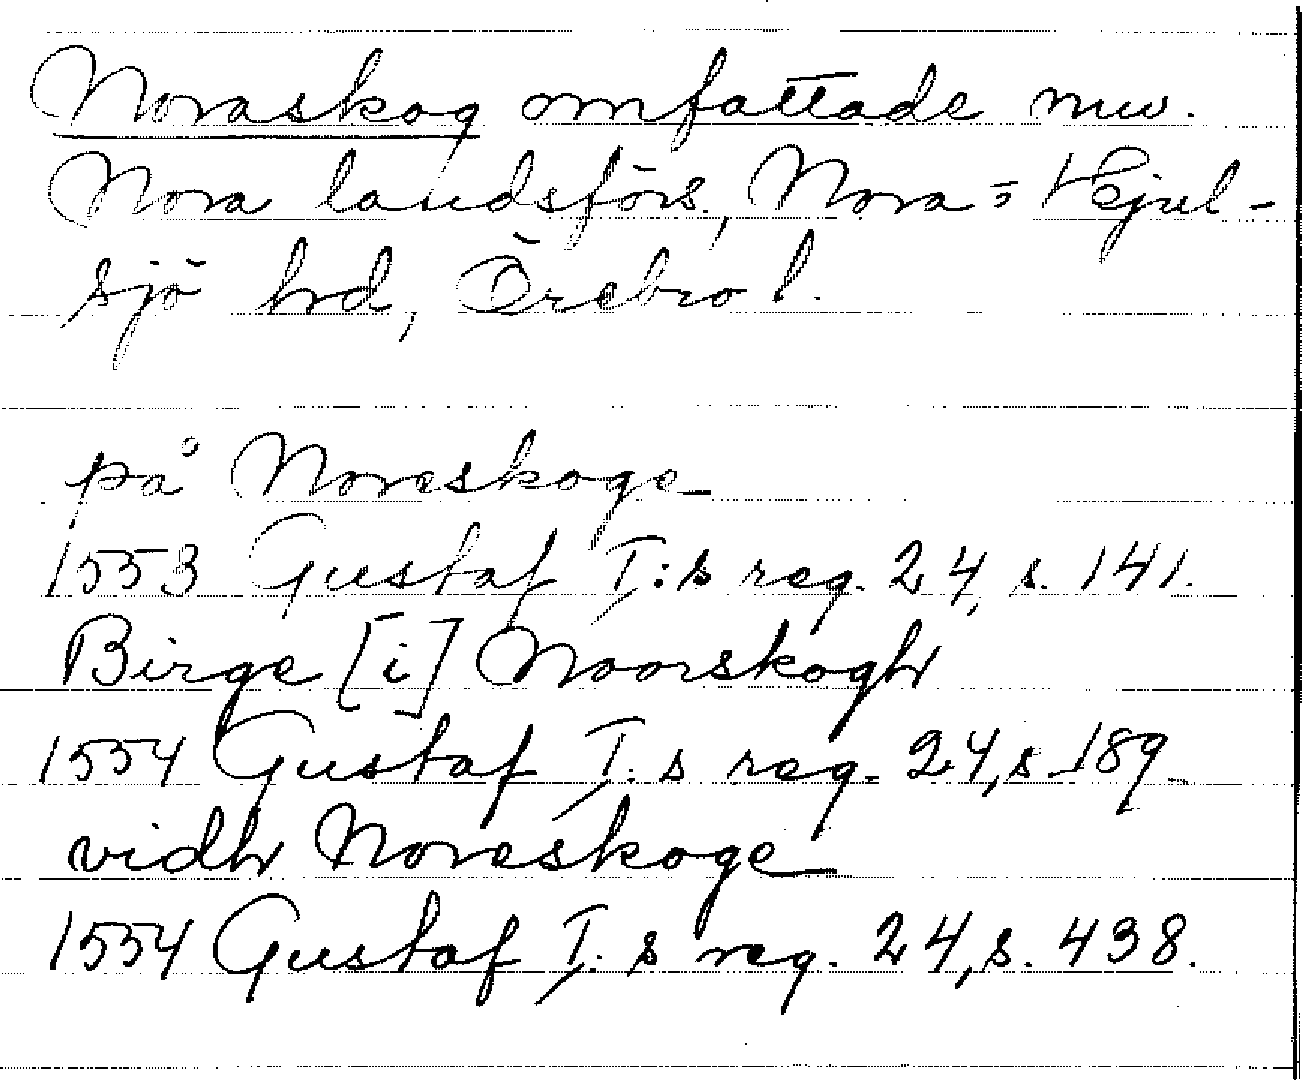 Noraskog omfattade nuv.
Nora landsförs., Nora = Hjul-
sjö hrd, Örebro l.
på Noreskoge
1553 Gustaf I:s reg. 24, s. 141.
Birge [i] Noorskogh
1554 Gustaf I:s reg. 24, s. 189.
vidh Noreskoge
1554 Gustaf I:s reg. 24, s. 438.